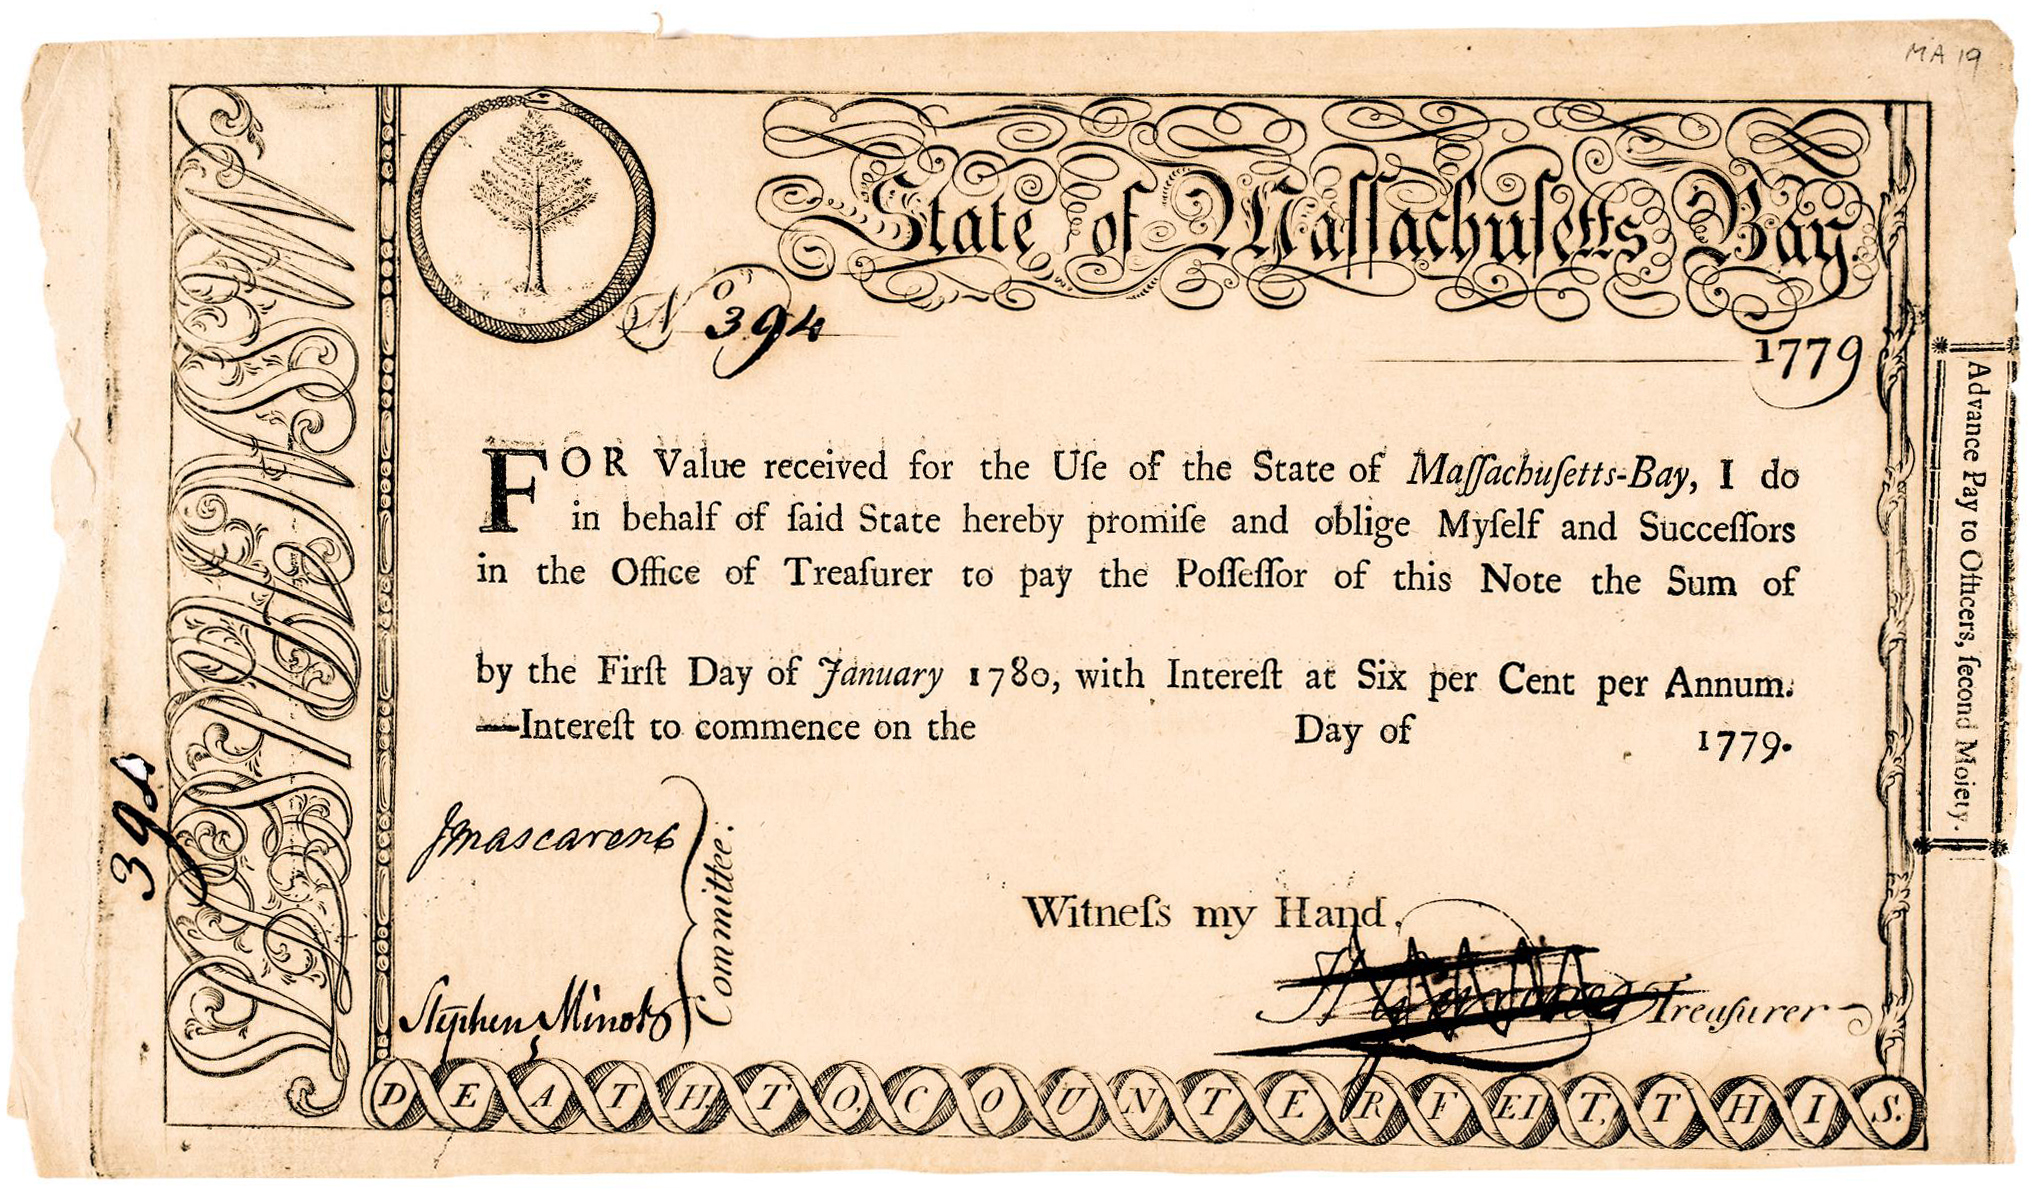 MA 19
State of Maſſachuſetts Bay.
No 394
1779
FOR Value received for the Uſe of the State of Maſſachuſetts-Bay, I do
in behalf of ſaid State hereby promiſe and oblige Myſelf and Succeſſors
in the Office of Treaſurer to pay the Poſſeſſor of this Note the Sum of
by the Firſt Day of January 1780, with Intereſt at Six per Cent per Annum.
—Intereſt to commence on the Day of 1779.
Jmascarene
Stephen Minot
Committee.
Witneſs my Hand.
Treaſurer
DEATH. TO. COUNTERFEIT, THIS.
394
Advance Pay to Officers, ſecond Moiety.